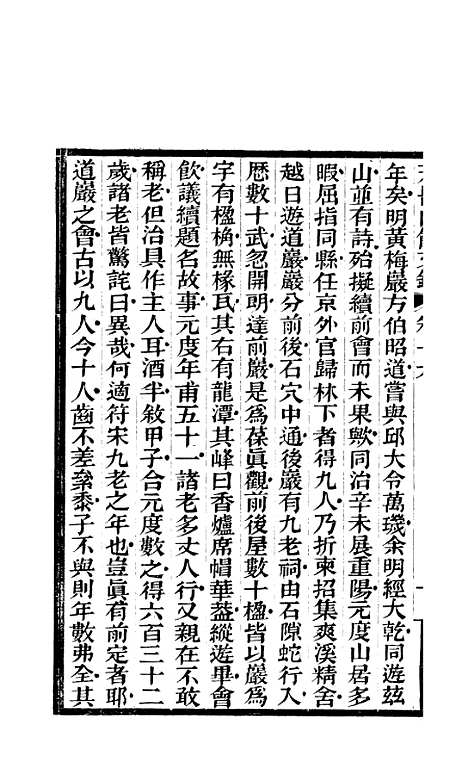 年矣明黃梅巖方伯昭道嘗與邱大令萬璣余明經大乾同遊茲
山並有詩殆擬續前會而未果歟同治辛未展重陽元度山居多
暇屈指同縣任京外官歸林下者得九人乃折柬招集爽溪精舍
越日遊道巖巖分前後石穴中通後巖有九老祠由石隙蛇行入
歷數十武忽開朗達前巖是爲葆眞觀前後屋數十楹皆以巖爲
宇有楹桷無椽瓦其右有龍潭其峰曰香爐席帽華蓋縱遊畢會
飮議續題名故事元度年甫五十一諸老多丈人行又親在不敢
稱老但治具作主人耳酒半敘甲子合元度數之得六百三十二
歲諸老皆驚詫曰異哉何適符宋九老之年也豈眞有前定者耶
道巖之會古以九人今十人齒不差絫黍子不與則年數弗全其